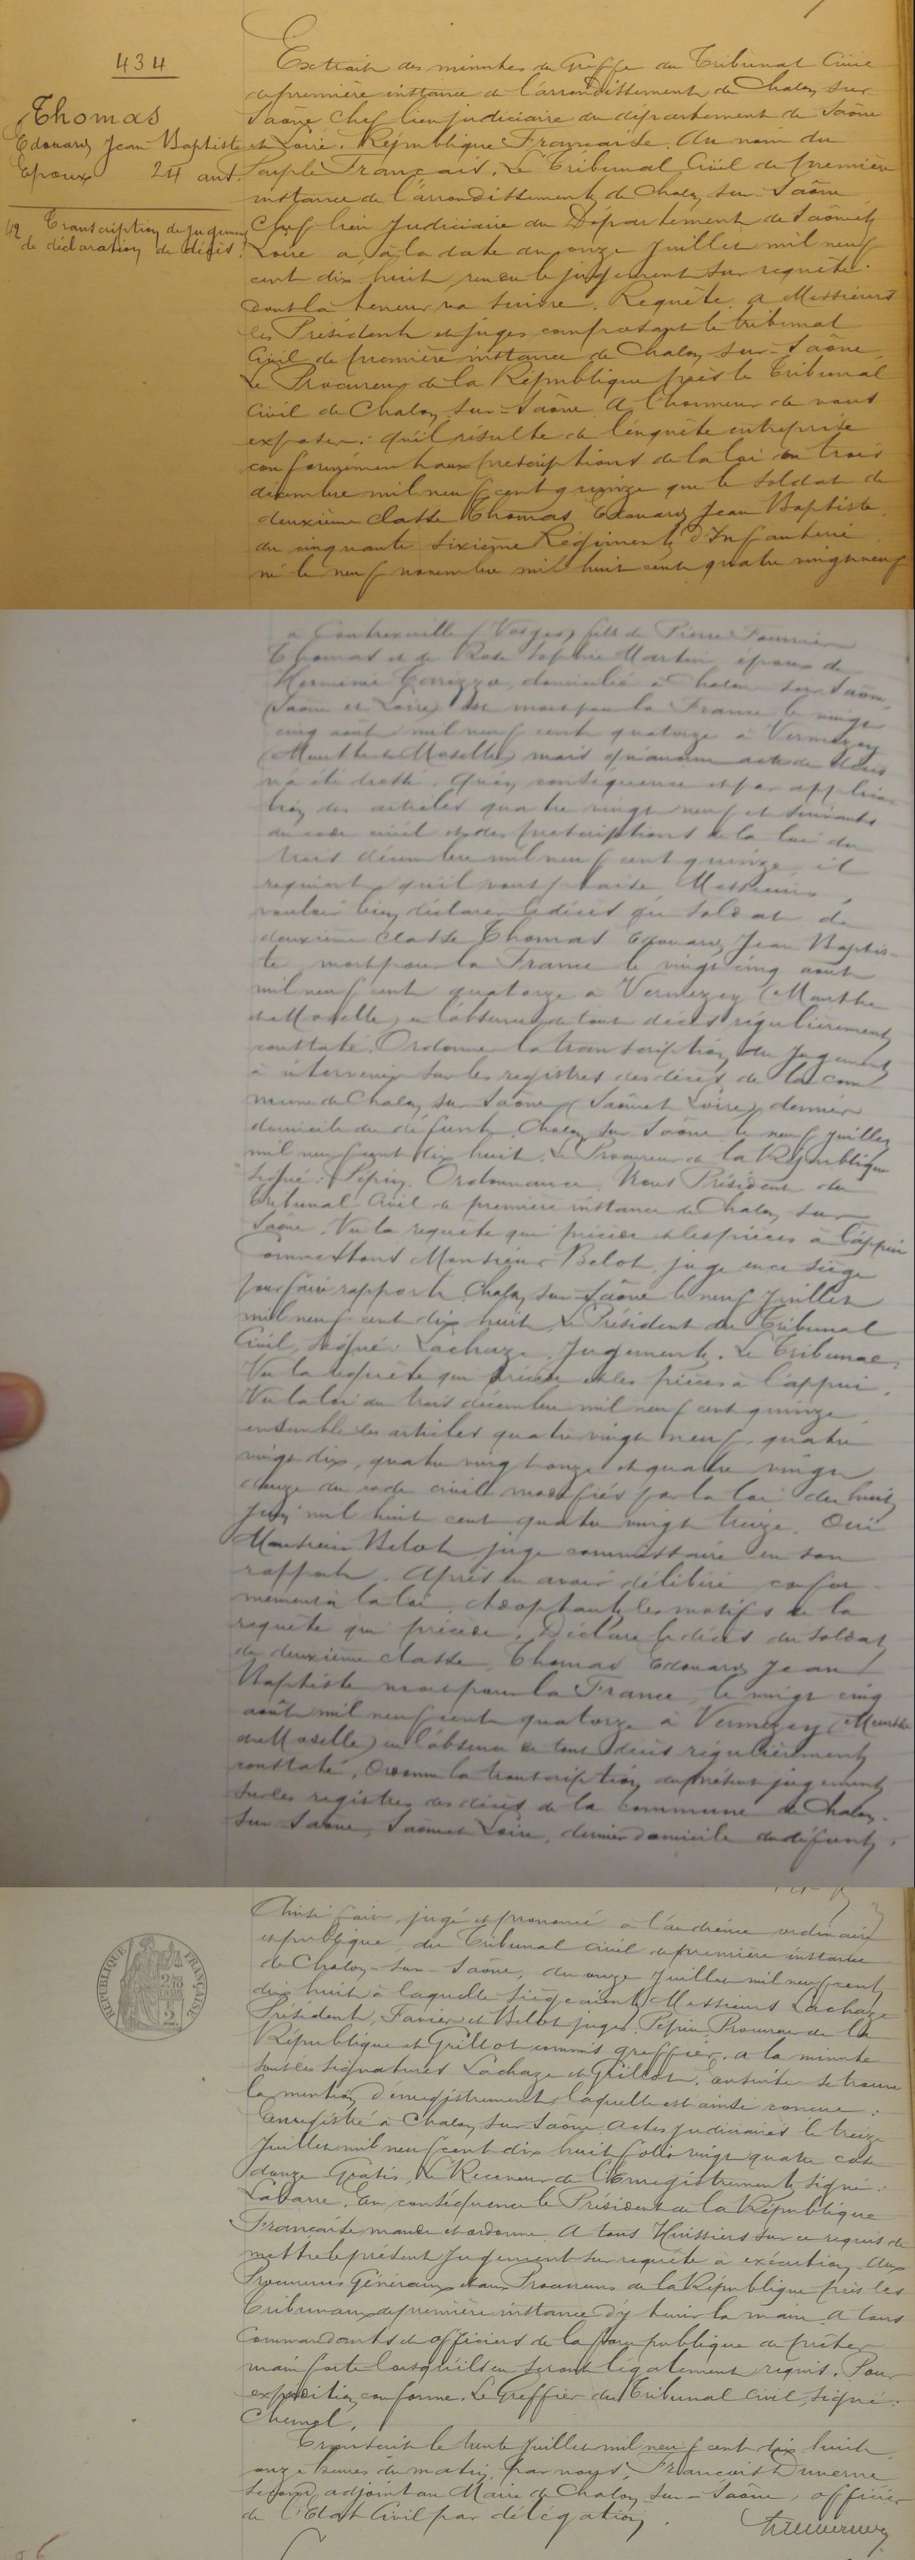 434
Thomas
Edouard Jean Baptiste
Epoux 24 ans.
Transcription de jugement
de déclaration de décès.
Extrait des minutes du Greffe du Tribunal Civil
de première instance de l'arrondissement de Chalon sur
Saône Chef lieu judiciaire du département de Saône
et Loire. République Française. Au nom du
Peuple Français. Le Tribunal Civil de première
instance de l'arrondissement de Chalon sur Saône
Chef lieu Judiciaire du Département de Saône et
Loire a, à la date du onze Juillet mil neuf
cent dix huit, rendu le jugement sur requête
dont la teneur va suivre. Requête. A Messieurs
les Président et juges composant le tribunal
Civil de première instance de Chalon sur Saône
Le Procureur de la République près le Tribunal
Civil de Chalon sur Saône a l'honneur de vous
exposer: qu'il résulte de l'enquête entreprise
conformément aux prescriptions de la loi du trois
décembre mil neuf cent quinze que le soldat de
deuxième classe Thomas Edouard Jean Baptiste
du cinquante sixième Régiment d'Infanterie
né le neuf novembre mil huit cent quatre vingt neuf
à Contrexeville (Vosges) fils de Pierre Fourrier
Thomas et de Rose Sophie Martin, époux de
Herminie domicilié à Chalon sur Saône
(Saône et Loire) est mort pour la France le vingt
cinq août mil neuf cent quatorze à Vermezey
(Meurthe et Moselle) mais qu'aucun acte de décès
n'a été dressé. Qu'en conséquence et par applica-
tion des articles quatre vingt neuf et suivants
du code civil et des prescriptions de la loi du
trois décembre mil neuf cent quinze, il
requiert qu'il vous plaise Messieurs,
vouloir bien déclarer le décès du soldat de
deuxième classe Thomas Edouard Jean Baptis-
te mort pour la France le vingt cinq août
mil neuf cent quatorze à Vermezey (Meurthe
et Moselle) en l'absence de tout décès régulièrement
constaté. Ordonner la transcription du jugement
à intervenir sur les registres des décès de la com
mune de Chalon sur Saône (Saône et Loire) dernier
domicile du défunt. Chalon sur Saône le neuf juillet
mil neuf cent dix huit. Le Procureur de la République
Signé: Pépin. Ordonnance. Nous Président du
Tribunal Civil de première instance de Chalon sur
Saône. Vu la requête qui précède et les pièces à l'appui
Commettons Monsieur Belot, juge en ce siège
pour faire rapport. Chalon sur Saône le neuf Juillet
mil neuf cent dix huit. Le Président du Tribunal
Civil, Signé: Lachaze. Jugement. Le Tribunal:
Vu la requête qui précède et les pièces à l'appui.
Vu la loi du trois décembre mil neuf cent quinze
ensemble les articles quatre vingt neuf, quatre
vingt dix, quatre vingt onze et quatre vingt
douze du code civil modifiés par la loi du huit
juin mil huit cent quatre vingt treize. Oui
Monsieur Belot juge commissaire en son
rapport. Après en avoir délibéré confor
mément à la loi. Adoptant les motifs de la
requête qui précède. Déclare le décès du soldat
de deuxième classe Thomas Edouard Jean
Baptiste mort pour la France le vingt cinq
août mil neuf cent quatorze à Vermezey (Meurthe
et Moselle) en l'absence de tout décès régulièrement
constaté. Ordonne la transcription du présent jugement
sur les registres des décès de la commune de Chalon
sur Saône, Saône et Loire, dernier domicile du défunt.
Ainsi fait jugé et prononcé à l'audience ordinaire
et publique du Tribunal civil de première instance
de Chalon-sur-Saône, du onze Juillet mil neuf cent
dix huit à laquelle siégeaient Messieurs Lachaze
Président, Favier et Belot juges. Pépin Procureur de la
République et Grillot commis greffier. A la minute
sont les signatures Lachaze et Grillot. Ensuite se trouve
la mention d'enregistrement laquelle est ainsi conçue:
Enregistré à Chalon sur Saône Actes Judiciaires le treize
Juillet mil neuf cent dix huit folio vingt quatre case
douze Gratis. Le Receveur de l'Enregistrement, signé:
Labarre. En conséquence le Président de la République
Française mande et ordonne. A tous Huissiers sur ce requis de
mettre le présent jugement sur requête à exécution. Aux
Procureurs Généraux et aux Procureurs de la République près les
Tribunaux de première instance d'y tenir la main. A tous
Commandants et officiers de la force publique de prêter
main forte lorsqu'ils en seront légalement requis. Pour
expédition conforme. Le Greffier du Tribunal Civil, signé:
Chemel.
Transcrit le trente Juillet mil neuf cent dix huit
onze heures du matin, par nous, François Duverne
second adjoint au Maire de Chalon-sur-Saône, officier
de l'Etat Civil par délégation.
RÉPUBLIQUE FRANÇAISE